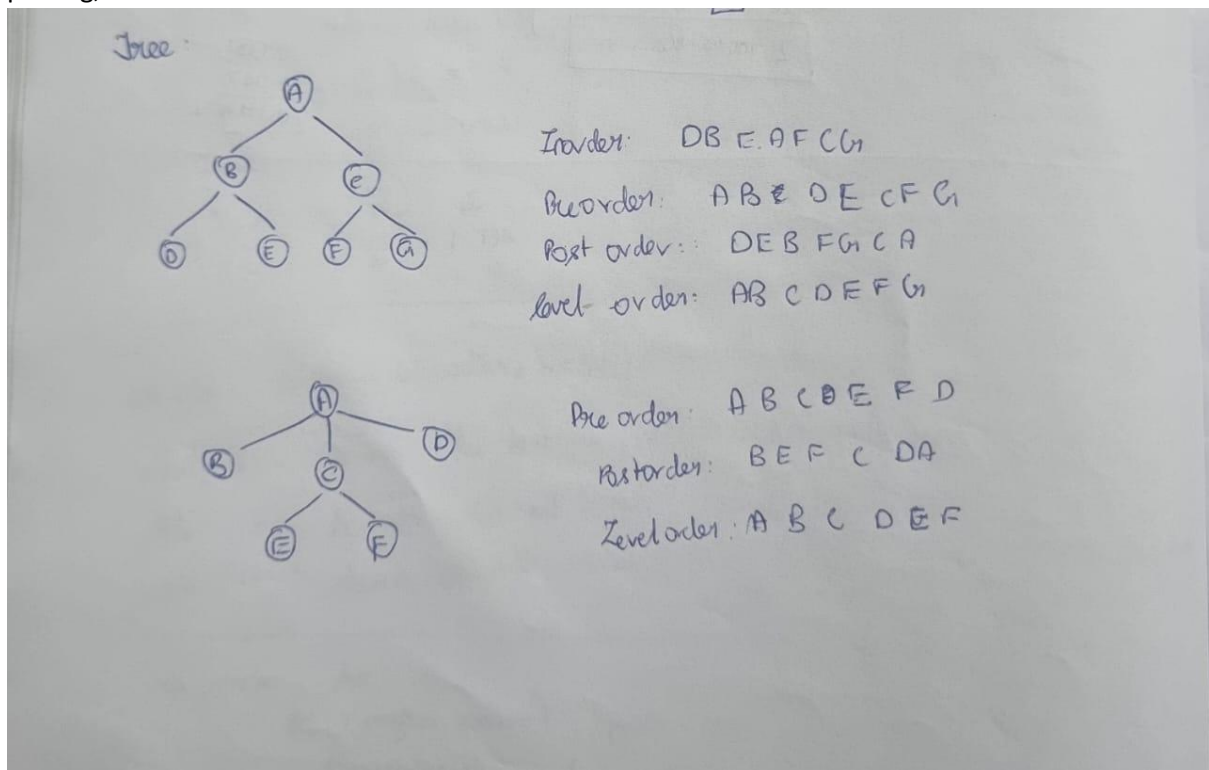 Tree:
A
Inorder: DB E. A F C G
B C
Preorder: A B D E C F G
D E F G
Post order: DEB FG C A
level order: AB C D E F G
A
Pre order: A B C E F D
B D
C
Postorder: B E F C DA
E F
Level order: A B C D E F